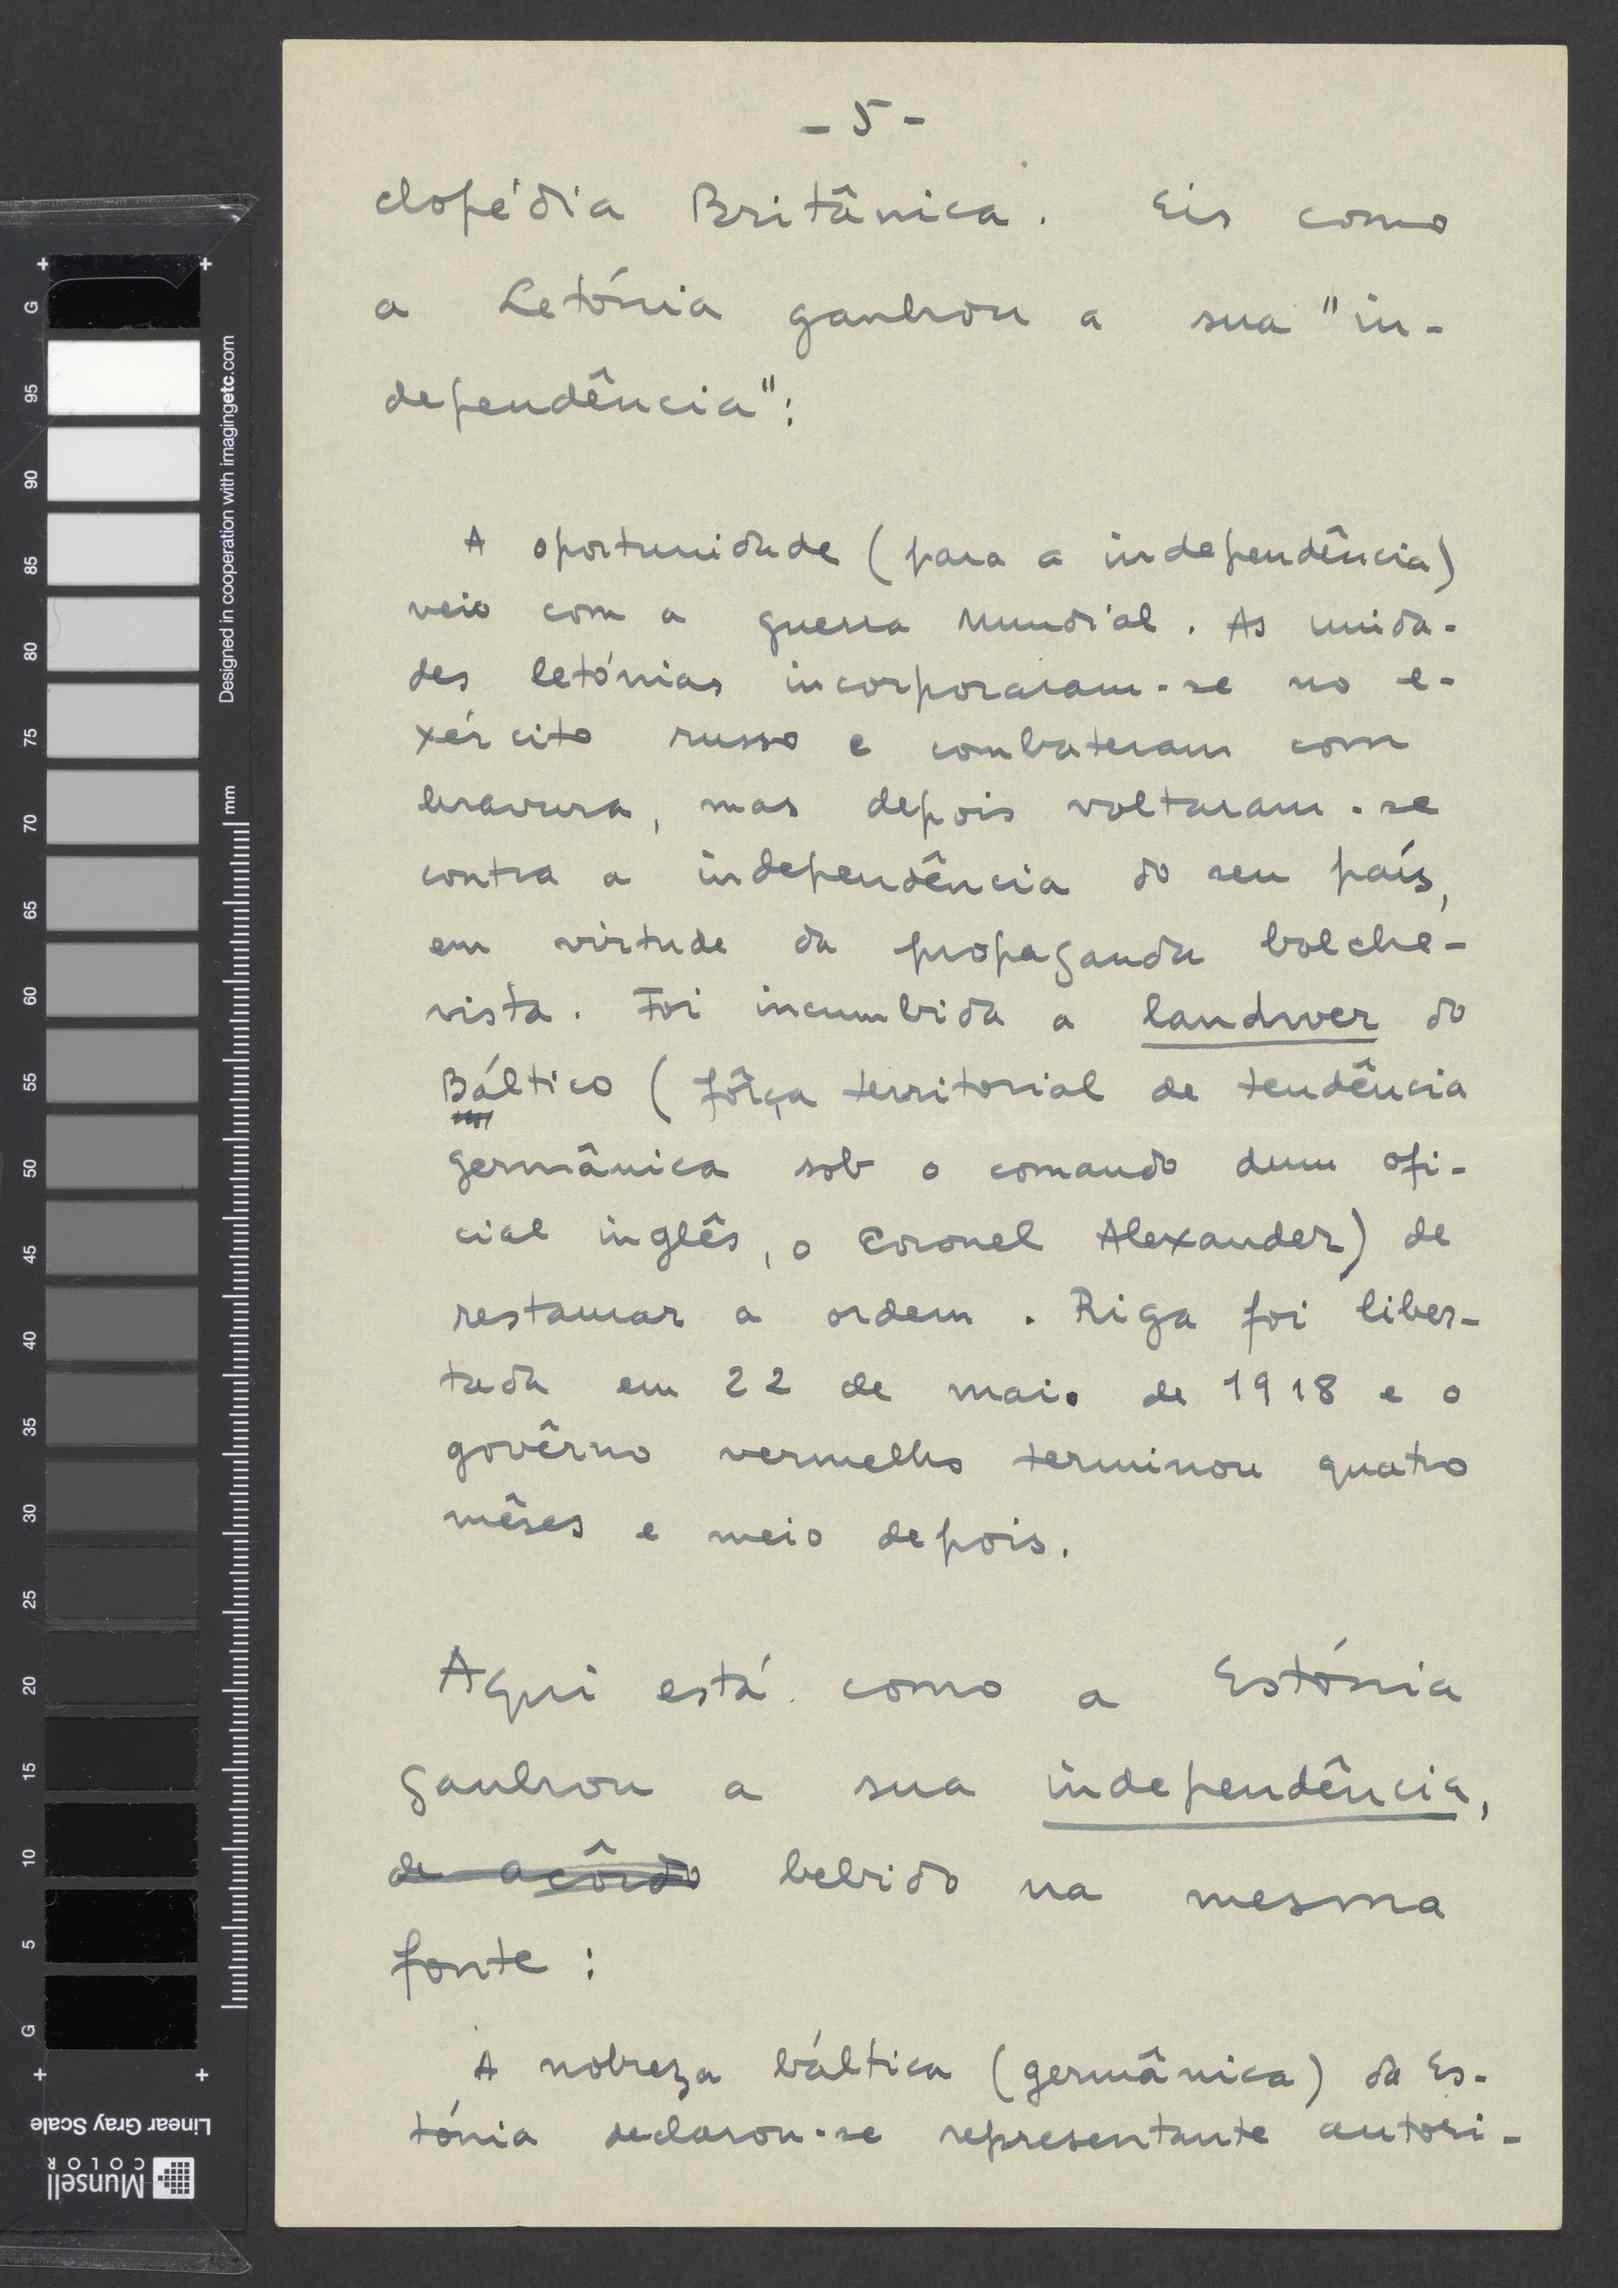 - 5 -
clopédia Britânica. Eis como
a Letónia ganhou a sua "in-
dependência":
A oportunidade (para a independência)
veio com a guerra Mundial. As unida-
des letónias incorporaram-se no e-
xército russo e combateram com
bravura, mas depois voltaram-se
contra a independência do seu país,
em virtude da propaganda bolche-
vista. Foi incumbida a landwer do
Báltico (fôrça territorial de tendência
germânica sob o comando dum ofi-
cial inglês, o coronel Alexander) de
restaurar a ordem. Riga foi liber-
tada em 22 de maio de 1918 e o
govêrno vermelho terminou quatro
mêses e meio depois.
Aqui está como a Estónia
ganhou a sua independência,
de acôrdo bebido na mesma
fonte:
A nobreza báltica (germânica) da Es-
tónia declarou-se representante autori-
G
95
90
85
80
75
70
65
60
55
50
45
40
35
30
25
20
15
10
5
G
mm
Designed in cooperation with imagingetc.com
Linear Gray Scale
Munsell
COLOR